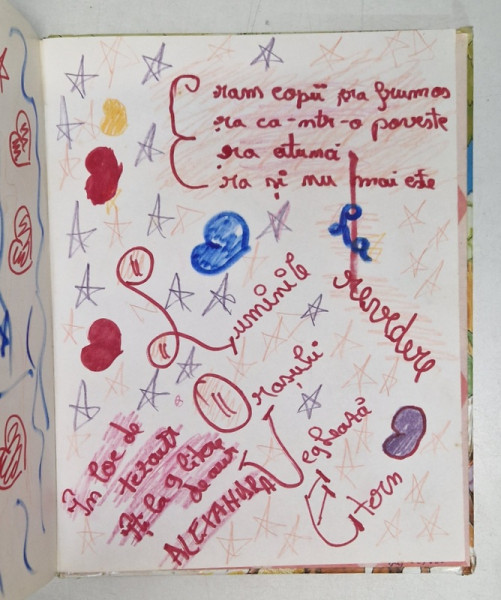 Eram copii era frumos
Era ca-ntr-o poveste
Era atunci
Era și nu mai este
La
revedere
Luminile
Orașului
Veghează
Etern
În loc de
litere
de aur
ALEXANDRA